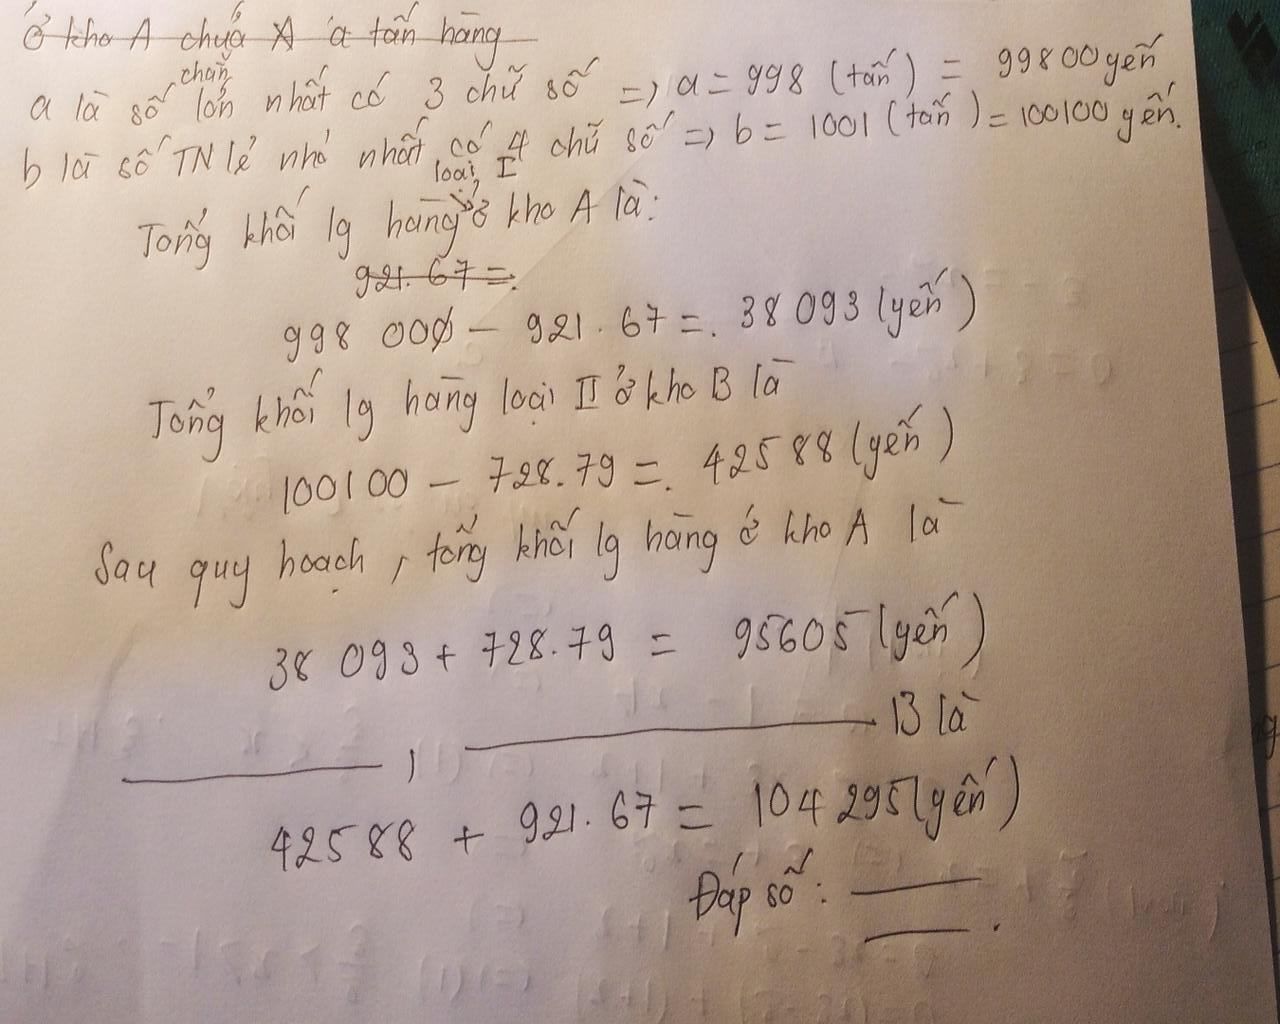 ở kho A chứa A a tấn hàng
a là số chẵn lớn nhất có 3 chữ số => a = 998 (tấn) = 99800 yến
b là số TN lẻ nhỏ nhất có 4 chữ số => b = 1001 (tấn) = 100100 yến.
Tổng khối lg hàng loại I ở kho A là:
921.67 =.
998 000 - 921.67 =. 38 093 (yến)
Tổng khối lg hàng loại II ở kho B là
100100 - 728.79 =. 42588 (yến)
Sau quy hoạch, tổng khối lg hàng ở kho A là
38 093 + 728.79 = 95605 (yến)
, B là
42588 + 921.67 = 104 295 (yến)
Đáp số:
.